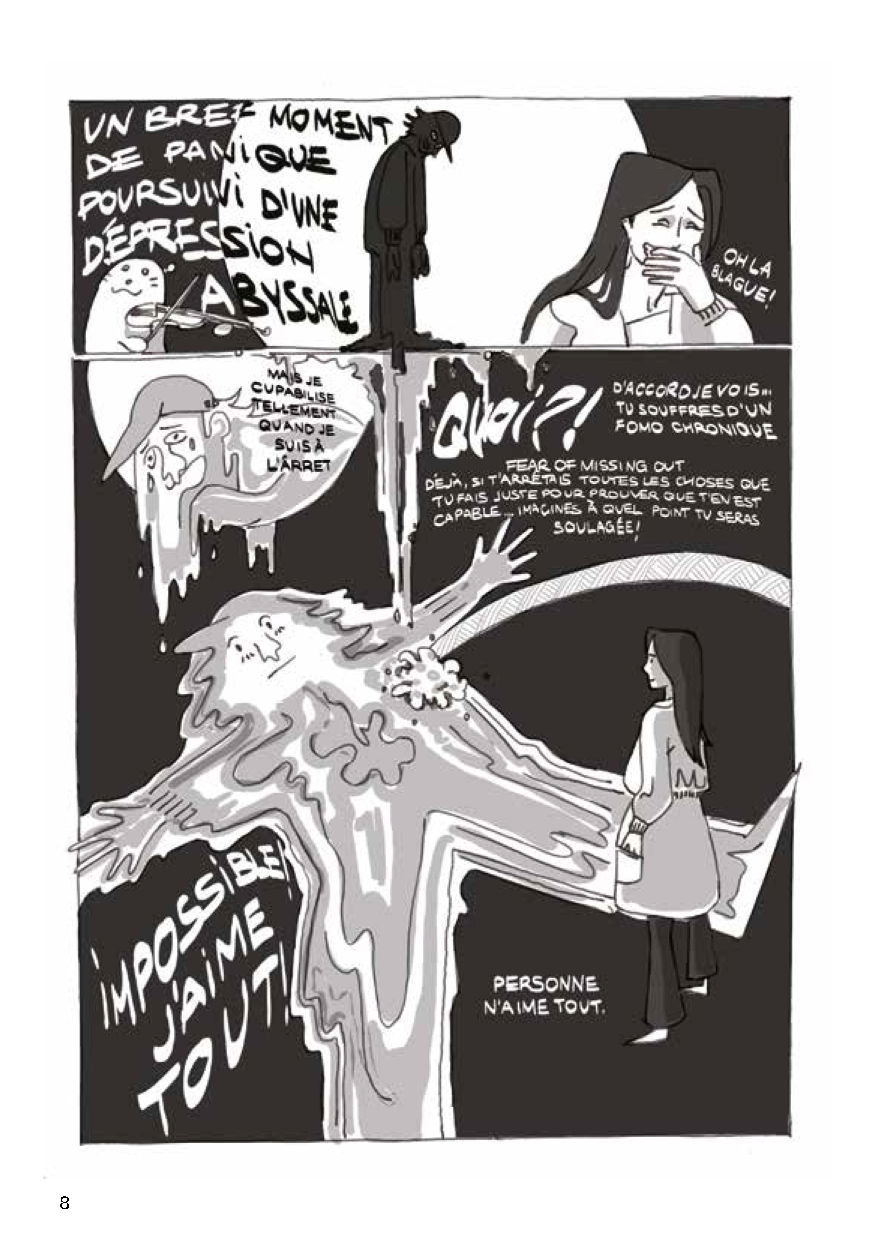 UN BREF MOMENT
DE PANIQUE
POURSUIVI D'UNE
DÉPRESSION
ABYSSALE
OH LA
BLAGUE!
MAIS JE
CUPABILISE
TELLEMENT
QUAND JE
SUIS À
L'ÂRRET
QUOI?!
D'ACCORD JE VOIS...
TU SOUFFRES D'UN
FOMO CHRONIQUE
FEAR OF MISSING OUT
DÉJÀ, SI T'ARRÊTAIS TOUTES LES CHOSES QUE
TU FAIS JUSTE POUR PROUVER QUE T'EN EST
CAPABLE... IMAGINES À QUEL POINT TU SERAS
SOULAGÉE!
IMPOSSIBLE!
J'AIME
TOUT!
PERSONNE
N'AIME TOUT.
8